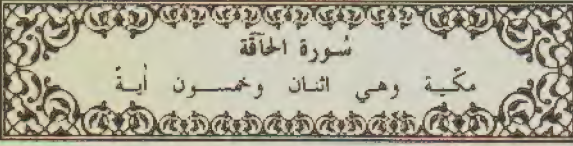 سُورة الحَاقّة
مكّية وهي اثنان وخمسون أيةً